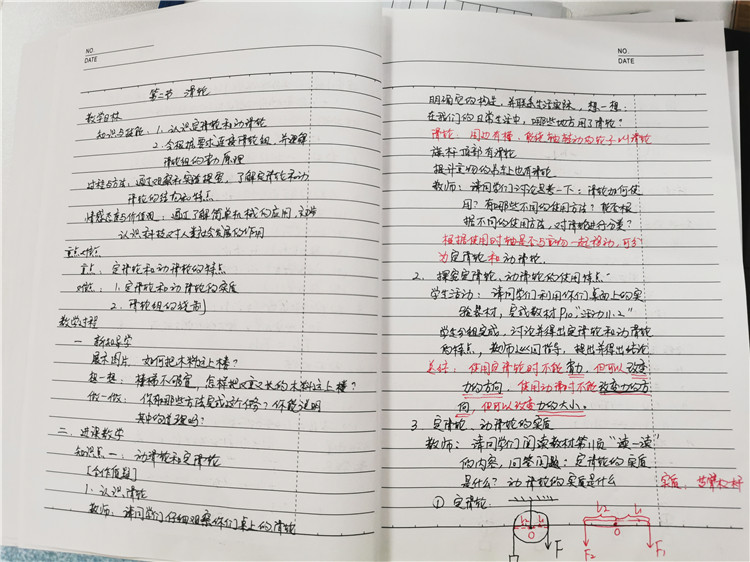 NO.
DATE
第二节 滑轮
教学目标
知识与技能：1.认识定滑轮和动滑轮
2.会根据要求连接滑轮组，并理解
滑轮组的省力原理
过程与方法：通过观察和实验探究，了解定滑轮和动
滑轮的结构和特点
情感态度与价值观：通过了解简单机械的应用，初步
认识科技对人类社会发展的作用
重点难点
重点：定滑轮和动滑轮的特点
难点：1.定滑轮和动滑轮的实质
2.滑轮组的绕制
教学过程
一 新知导学
展示图片 如何把木料运上楼？
想一想：楼梯不够宽，怎样把又重又长的木料运上楼？
做一做：你有哪些方法完成这个任务？你能说明
其中的道理吗？
二、进课教学
知识点一：动滑轮和定滑轮
[合作探究]
1.认识滑轮
教师：请同学们仔细观察你们桌上的滑轮
NO.
DATE
明确它的构造，并联系生活实际，想一想：
在我们的日常生活中，哪些地方用了滑轮？
滑轮：周边有槽，能绕轴转动的轮子叫滑轮
旗杆顶部有滑轮
提升重物的吊车上也有滑轮
教师：请同学们讨论思考一下：滑轮如何使
用？有哪些不同的使用方法？能否根
据不同的使用方法，对滑轮进行分类？
根据使用时轴是否与重物一起移动，可分
为定滑轮和动滑轮.
2. 探究定滑轮、动滑轮的使用特点
学生活动：请同学们利用你们桌面上的实
验器材，完成教材P10"活动11.2"
学生分组完成，讨论并得出定滑轮和动滑轮
的特点，教师从旁指导，提出并得出结论
总结：使用定滑轮时不能省力，但可以改变
力的方向，使用动滑轮时不能改变力的方
向，但可以改变力的大小.
3. 定滑轮、动滑轮的实质
教师：请同学们阅读教材第11页"读一读"
的内容，回答问题：定滑轮的实质
是什么？动滑轮的实质是什么 实质：
① 定滑轮：
l2 l1
O
F
l2 l1
O
F2 F1